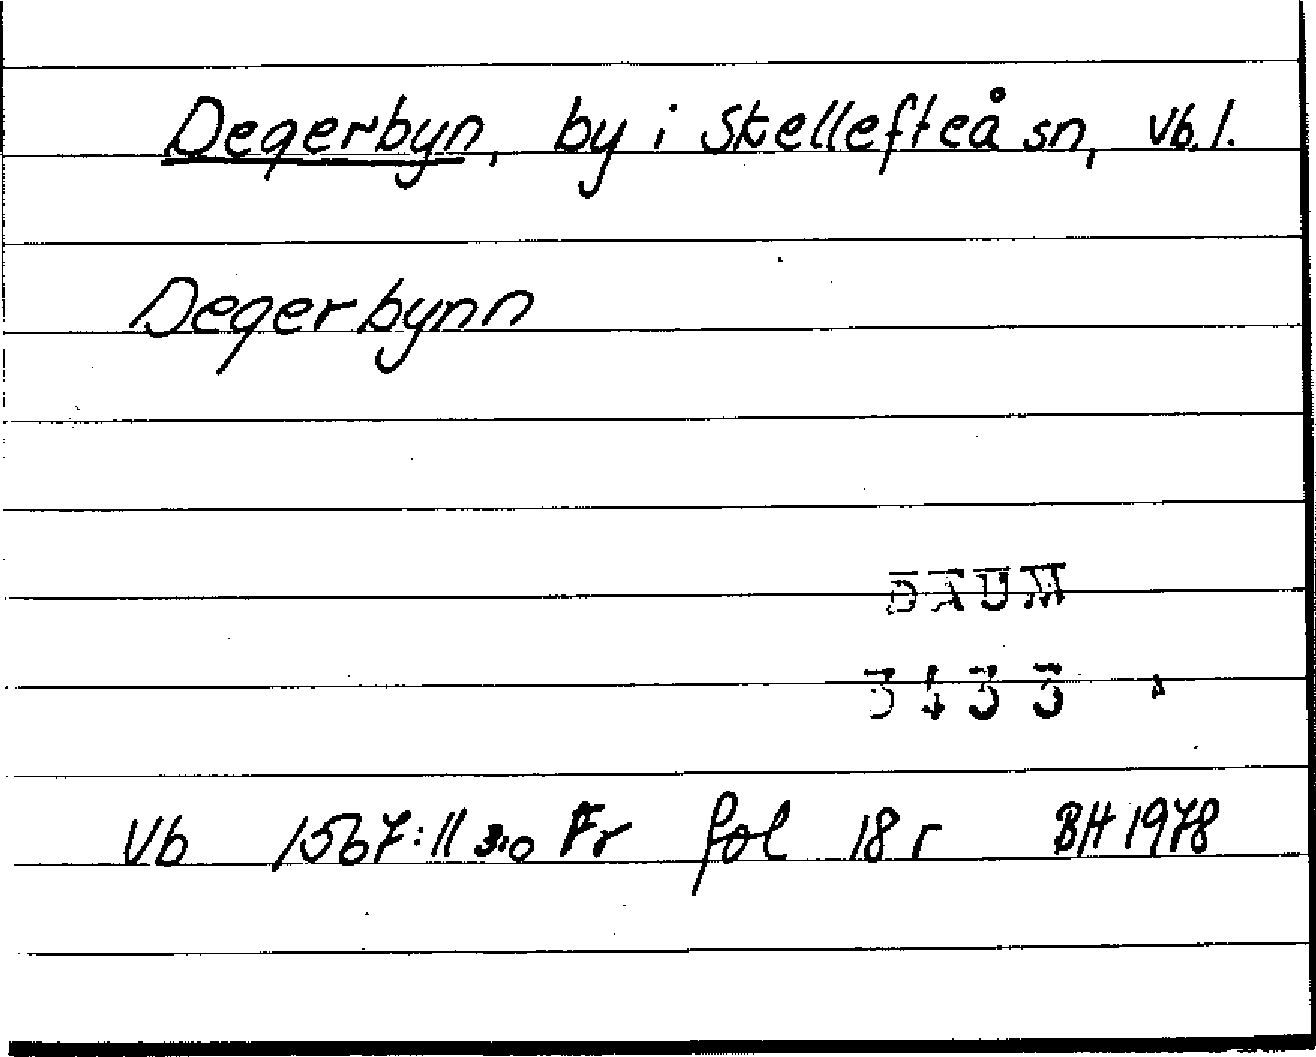 Degerbyn, by i Skellefteå sn, Vb. l.
Degerbynn
DAUM
3433
Vb 1567:11 Fr fol 18 r BH 1978